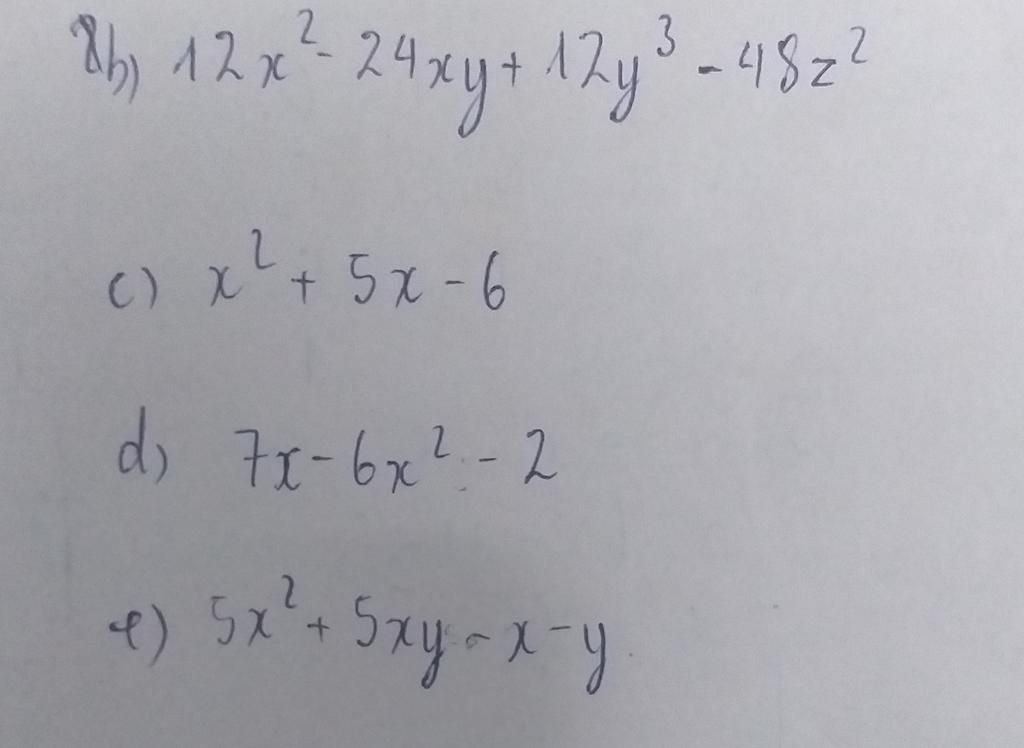 b) 12x² - 24xy + 12y³ - 48z²
c) x² + 5x - 6
d) 7x - 6x² - 2
e) 5x² + 5xy - x - y